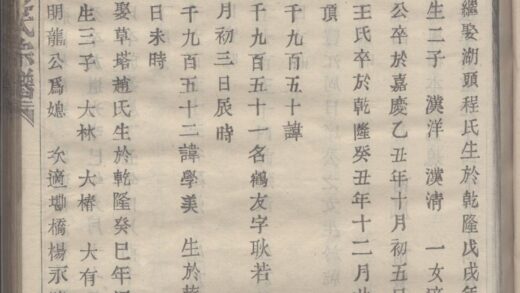 繼娶湖頭程氏生於乾隆戊戌年
生二子 漢洋 漢清 一女
公卒於嘉慶乙丑年十月初五
王氏卒於乾隆癸丑年十二月
頂
千九百五十諱
千九百五十一名鶴友字耿若
月初三日辰時
千九百五十二諱學美 生於
日未時
娶草塔趙氏生於乾隆癸巳年
生三子 大林 大椿 大有
明龍公為媳 次適 橋楊永
氏宗譜